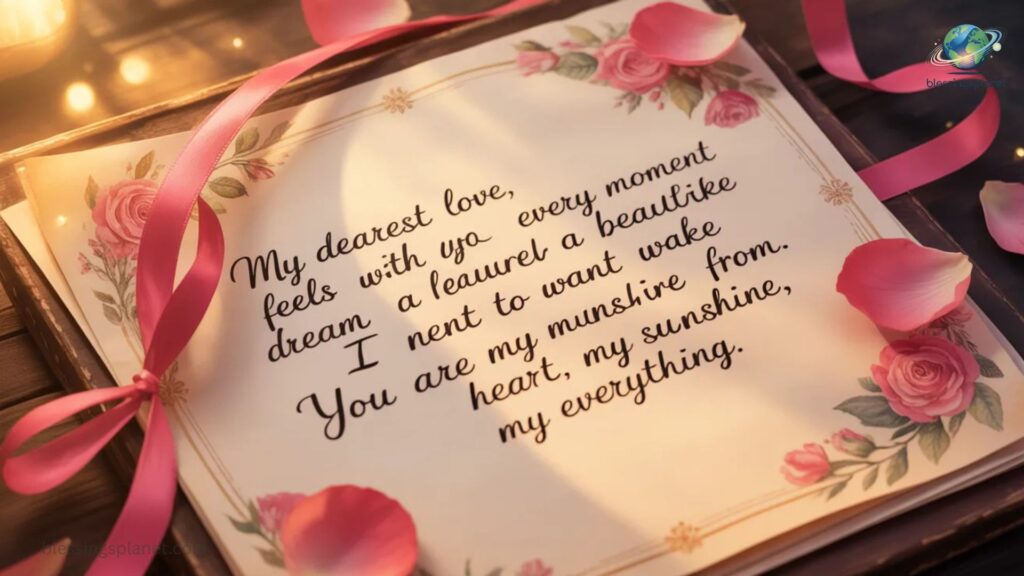 My dearest love,
feels with uya every moment
dream a leauurel a beautlike
I nent to want wake
You are my munshire from.
heart, my sunshine,
my everything.
blessingsplanet.com